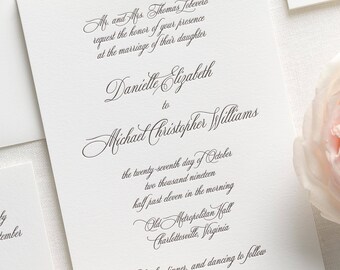 Mr. and Mrs. Thomas
request the honor of your presence
at the marriage of their daughter
Danielle Elizabeth
to
Michael Christopher Williams
the twenty-seventh day of October
two thousand nineteen
half past eleven in the morning
Old Metropolitan Hall
Charlottesville, Virginia
dinner, and dancing to follow
by
tember